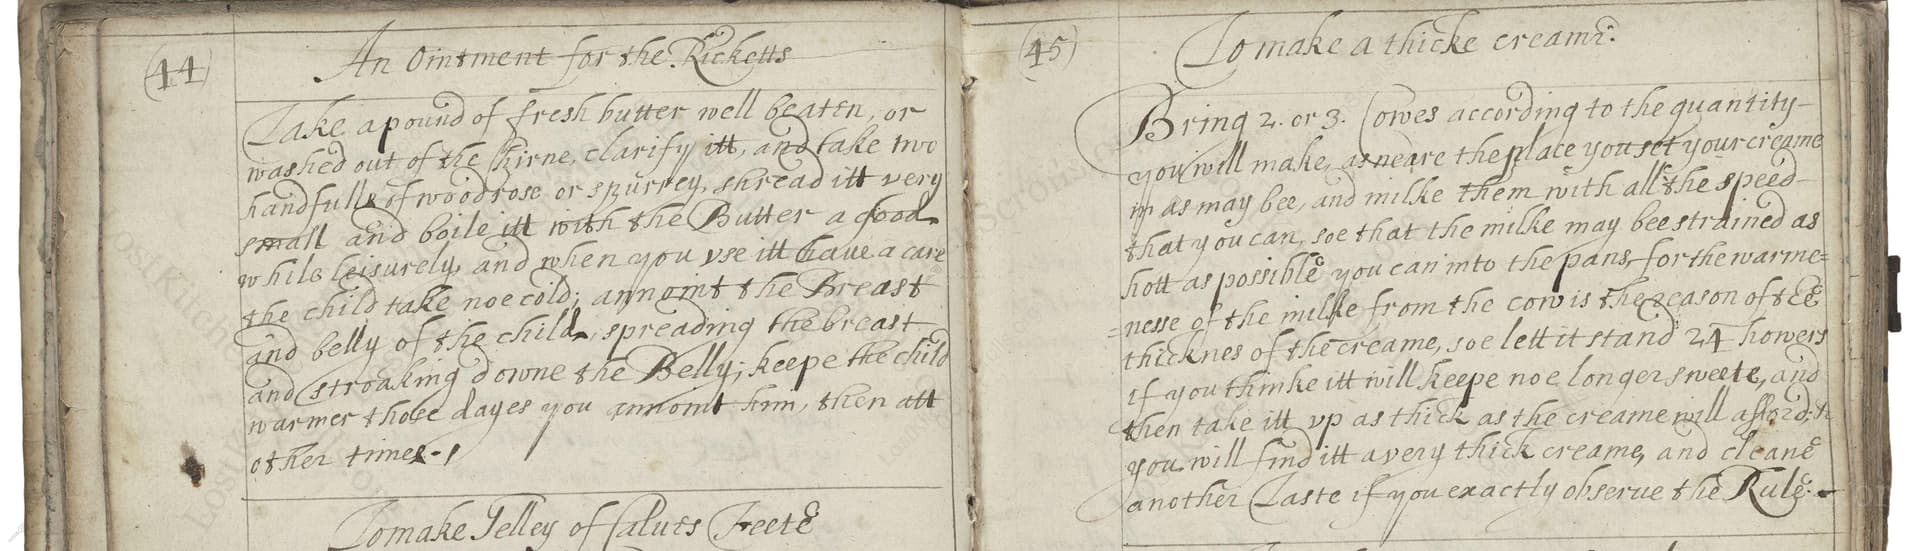 (44)
An Ointment for the Ricketts
Take a pound of fresh butter well beaten, or
washed out of the kirne, clarify itt, and take two
handfulls of woodrose or spurrey, shread itt very
small and boile itt with the Butter a good
while leisurely, and when you vse itt have a care
the child take noe cold; annoint the Breast
and belly of the child, spreading the breast
and stroaking downe the Belly; keepe the child
warmer those dayes you annoint him, then att
other times.
To make Jelley of Calves Feete
(45)
To make a thicke creame.
Bring 2. or 3. Cowes according to the quantity
you will make, as neare the place you set your creame
in as may bee, and milke them with all the speed
that you can, soe that the milke may bee strained as
hott as possible you can into the pans, for the warme=
=nesse of the milke from the cow is the reason of the
thicknes of the creame, soe lett it stand 24 howers
if you thinke itt will keepe noe longer sweete, and
then take itt vp as thick as the creame will afford;
you will find itt a very thick creame, and cleane
another Taste if you exactly observe the Rule.